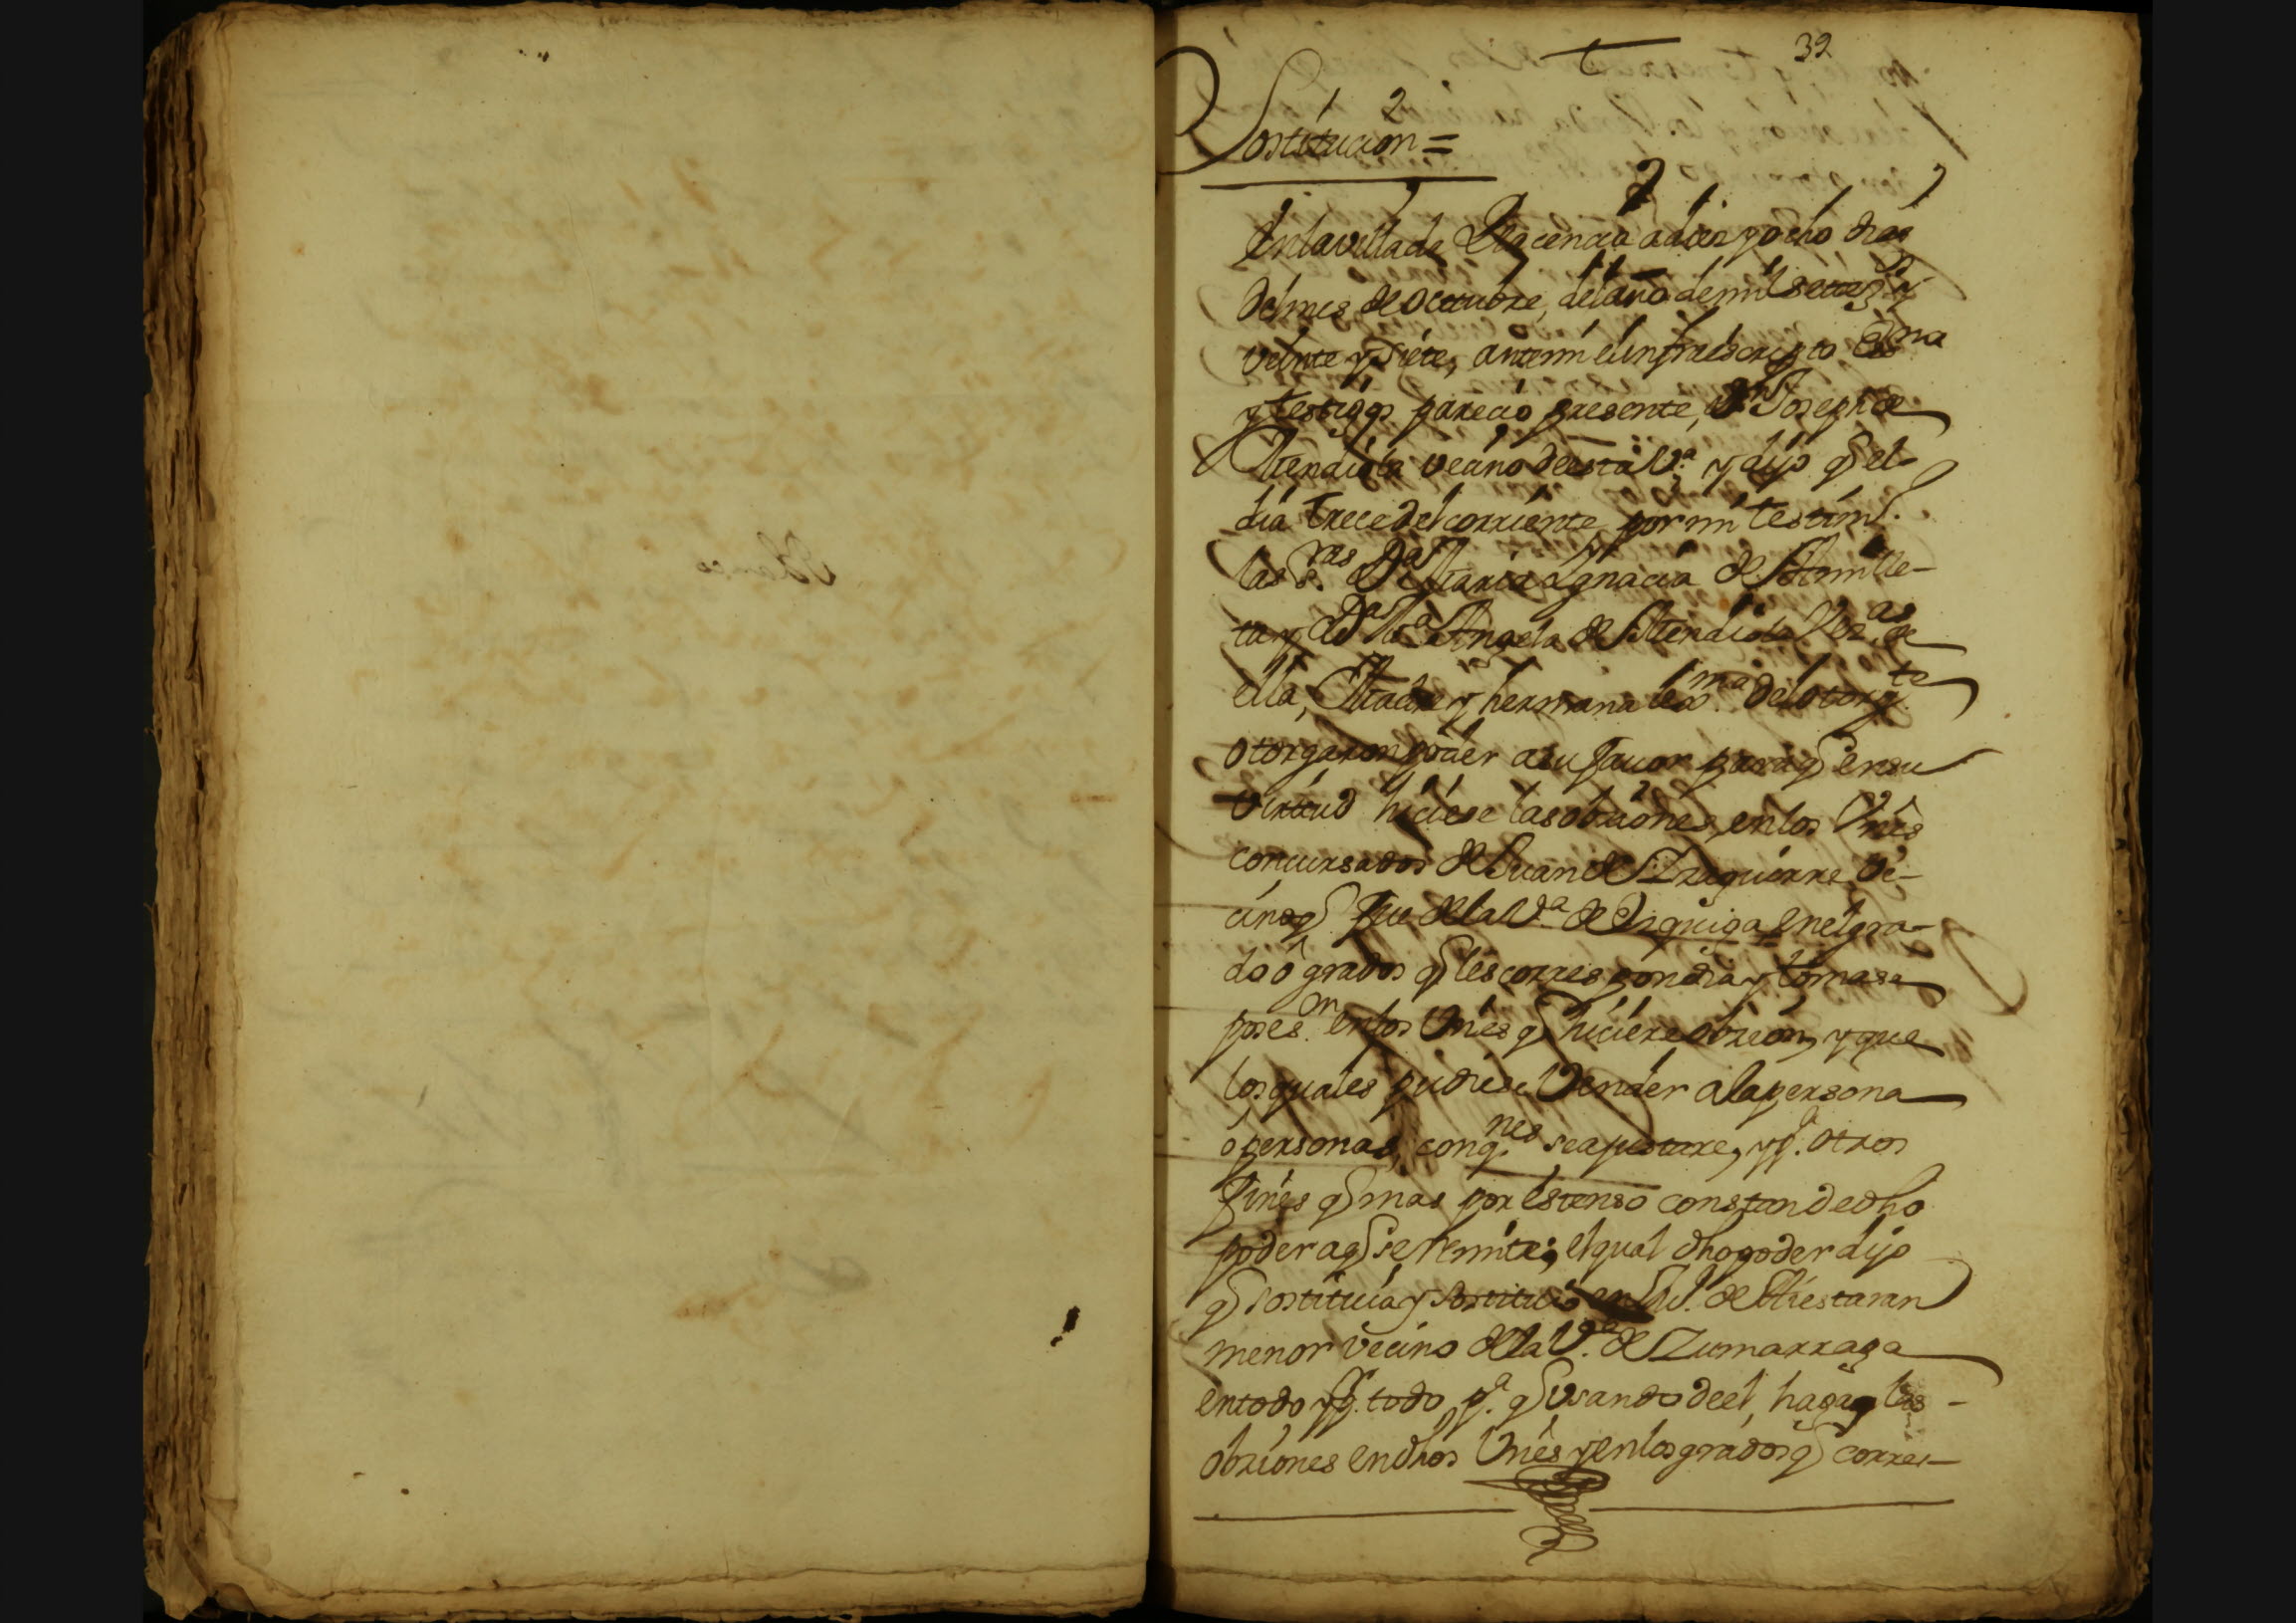 Blanco
32
Sostitucion =
En la villa de Placencia a diez y ocho dias
del mes de octtubre, del año de mil settez.s y
veinte y siete, antemi el infraescripto Essno
y testigos parecio presente, Dn Joseph de
Mendiola vecino de esta V.a y dijo q el
dia trece del corriente por mi testim.o
las S.ras D.a Maria Ygnacia de
ta y D.a Angela de Mendiola vez.as de
ella, Madre y hermana lex.ma del otorg.te
otorgaron poder a su favor para q en su
virtud hiciese las obziones en los Vnes
concursados de Juan de Yzaguirre ve-
cino q fue de la V.a de Elgueiga en el gra-
do ô grados q les correspondia y tomase
poses.on en los Vnes q hiciere obzion, y que
los quales pudiese Vender a la persona
o personas, con q.nes se ajustare, y p.a otros
fines q mas por estenso constan de dho
poder a q se remite; el qual dho poder dijo
q sostituia y sostituio en de Aliestaran
menor vecino de la V.a de Zumarraga
en todo y p.r todo p.a q Vsando de el, haga las
obziones en dhos Vnes y en los grados q corres-